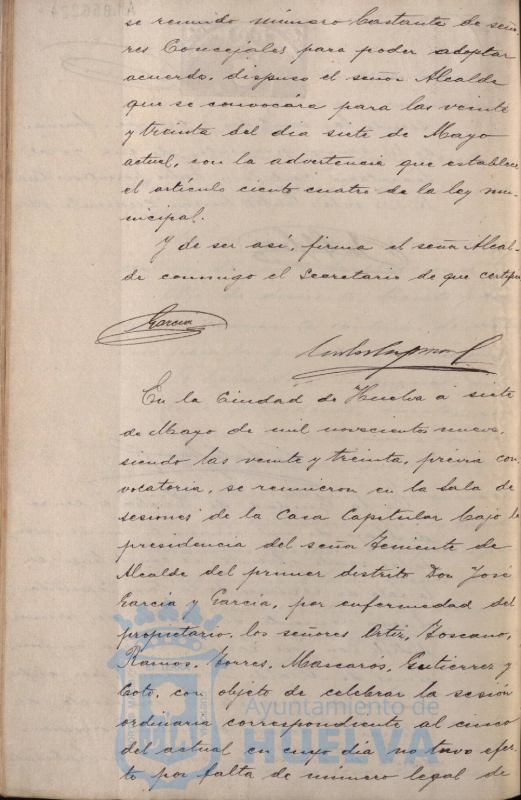 se reunido número bastante de seño-
res Concejales para poder adoptar
acuerdo, dispuso el señor Alcalde
que se convocára para las veinte
y treinta del dia siete de Mayo
actual, con la advertencia que establece
el artículo ciento cuatro de la ley mu-
nicipal.
Y de ser así, firma el señor Alcal-
de conmigo el Secretario de que certifico
Garcia
En la Ciudád de Huelva á siete
de Mayo de mil novecientos nueve,
siendo las veinte y treinta, prévia con
vocatoria, se reunieron en la Sala de
sesiones de la Casa Capitular bajo la
presidencia del señor Teniente de
Alcalde del primer distrito Don José
García y García, por enfermedad del
propietario, los señores Ortiz, Toscano,
Ramos, Torres, Mascarós, Gutierrez y
Coto, con objeto de celebrar la sesión
ordinaria correspondiente al cinco
del actual en cuyo dia no tuvo efec-
to por falta de número legal de
Ayuntamiento de
HUELVA